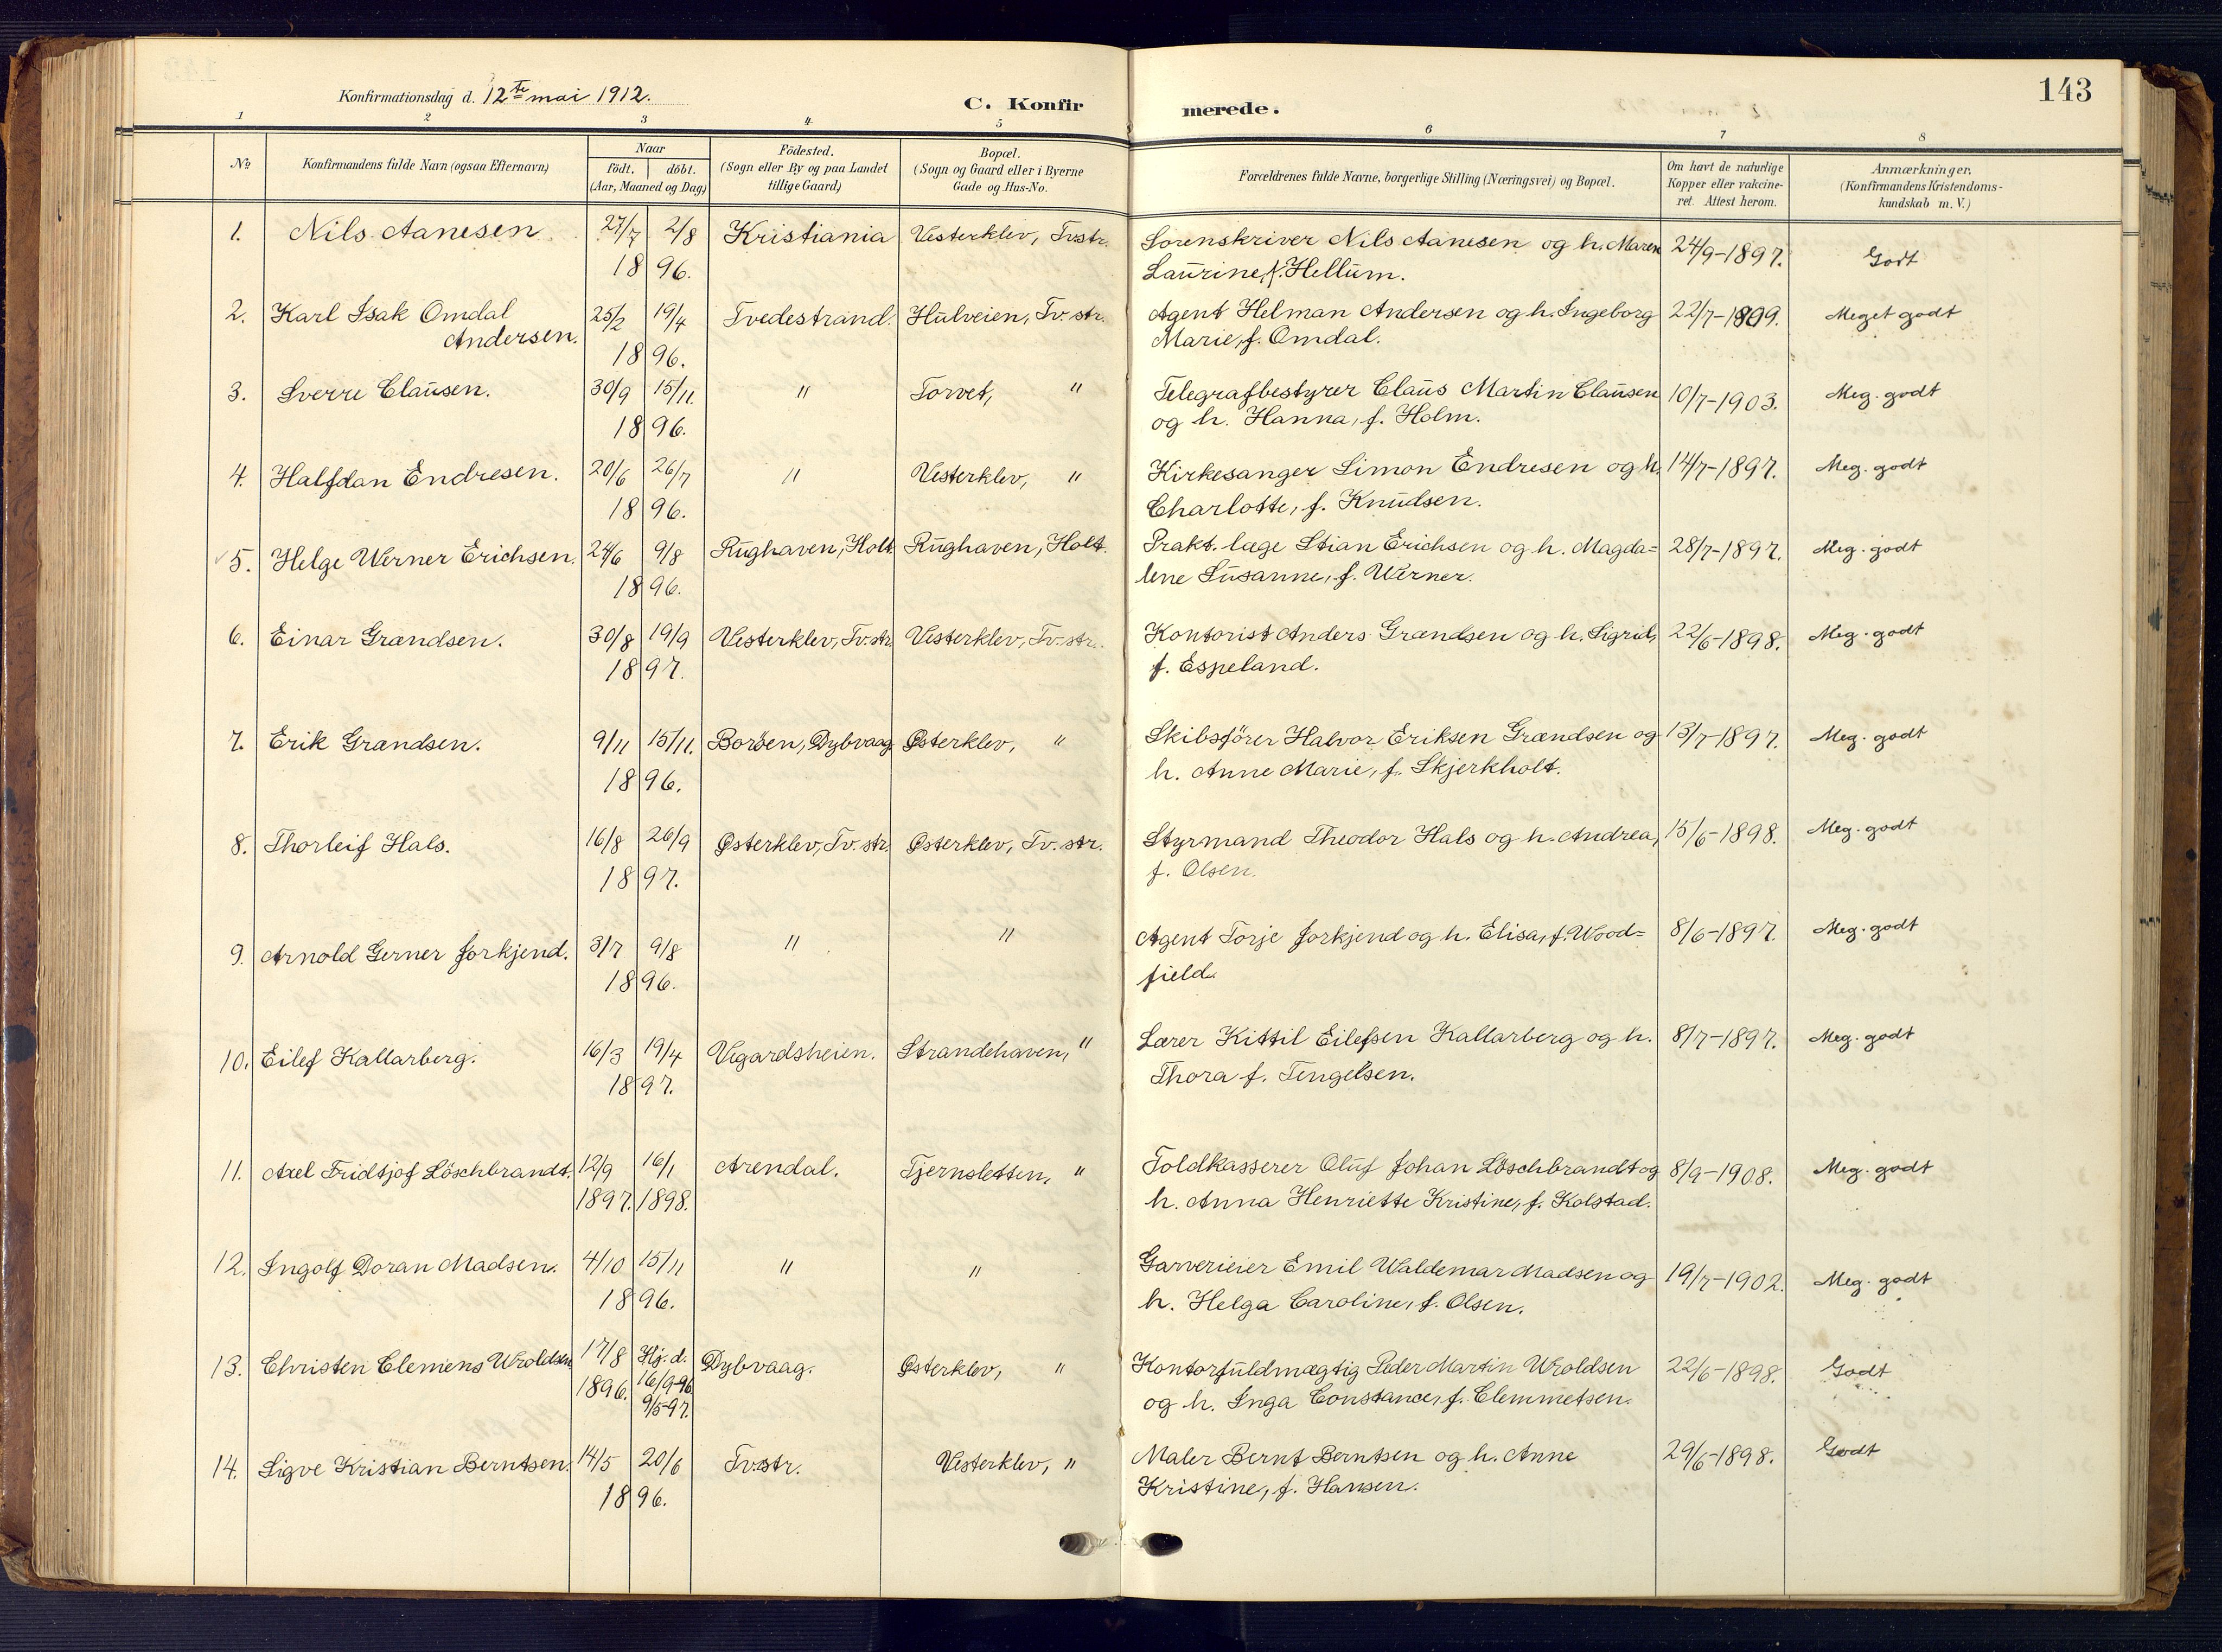 143
Konfirmationsdag d. 12te mai 1912.
C. Konfirmerede.
1 2 3 4 5 6 7 8
No
Konfirmandens fulde Navn (ogsaa Efternavn)
Naar
födt. döbt.
(Aar, Maaned og Dag)
Födested.
(Sogn eller By og paa Landet
tillige Gaard)
Bopæl.
(Sogn og Gaard eller i Byerne
Gade og Hus-No.
Forældrenes fulde Navne, borgerlige Stilling (Næringsvei) og Bopæl.
Om havt de naturlige
Kopper eller vakcine-
ret. Attest herom.
Anmærkninger.
(Konfirmandens Kristendoms-
kundskab m. V.)
1. Nils Aanesen 27/7 2/8 Kristiania Vesterklev, Tv.str. Sorenskriver Nils Aanesen og h. Maren 24/9-1897. Godt
1896. Laurine, f. Hellum.
2. Karl Isak Omdal 25/2 19/4 Tvedestrand. Hulveien, Tv. str. Agent Helman Andersen og h. Ingeborg 22/7-1899. Meget godt
Andersen. 1896. Marie, f. Omdal.
3. Sverre Clausen. 30/9 15/11. " Torvet, " Telegrafbestyrer Claus Martin Clausen 10/7-1903. Meg. godt
1896. og h. Hanna, f. Holm.
4. Halfdan Endresen. 20/6 26/7 " Vesterklev, " Kirkesanger Simon Endresen og h. 14/7-1897. Meg. godt
1896. Charlotte, f. Knudsen.
5. Helge Werner Erichsen. 24/6 9/8 Rughaven, Holt. Rughaven, Holt. Prakt. læge Stian Erichsen og h. Magda= 28/7-1897. Meg. godt
1896. lene Susanne, f. Werner.
6. Einar Grændsen. 30/8 19/9 Vesterklev, Tv. str. Vesterklev, Tv. str. Kontorist Anders Grændsen og h. Sigrid, 22/6-1898. Meg. godt
1897. f. Espeland.
7. Erik Grændsen. 9/11 15/11. Boröen, Dybvaag Østerklev, " Skibsförer Halvor Eriksen Grændsen og 13/7-1897. Meg. godt
1896. h. Anne Marie, f. Skjerkholt.
8. Thorleif Hals. 16/8 26/9 Østerklev, Tv. str. Østerklev, Tv. str. Styrmand Theodor Hals og h. Andrea, 15/6-1898. Meg. godt
1897. f. Olsen.
9. Arnold Gerner Jorkjend. 3/7 9/8 " " Agent Torje Jorkjend og h. Elisa, f. Wood= 8/6-1897. Meg. godt
1896. field.
10. Eilef Kallarberg. 16/3 19/4 Vegardsheien. Strandehaven, " Lærer Kittil Eilefsen Kallarberg og h. 8/7-1897. Meg. godt
1897. Thora f. Tengelsen.
11. Axel Fridtjof Löschbrandt. 12/9 16/1 Arendal. Tjernsletten, " Toldkasserer Oluf Johan Löschbrandt og 8/9-1908. Meg. godt
1897. 1898. h. Anna Henriette Kristine, f. Kolstad.
12. Ingolf Doran Madsen. 4/10 15/11 " " Garverieier Emil Waldemar Madsen og 19/7-1902. Meg. godt
1896. h. Helga Caroline, f. Olsen.
13. Christen Clemens Wroldsen 17/8 Hj. d. Dybvaag. Østerklev, " Kontorfuldmægtig Peder Martin Wroldsen 22/6-1898. Godt
1896. 16/9-96 og h. Inga Constance, f. Clemmetsen.
9/5-97.
14. Sigve Kristian Berntsen. 14/5 20/6 Tv.str. Vesterklev, " Maler Bernt Berntsen og h. Anne 29/6-1898. Godt
1896. Kristine, f. Hansen.